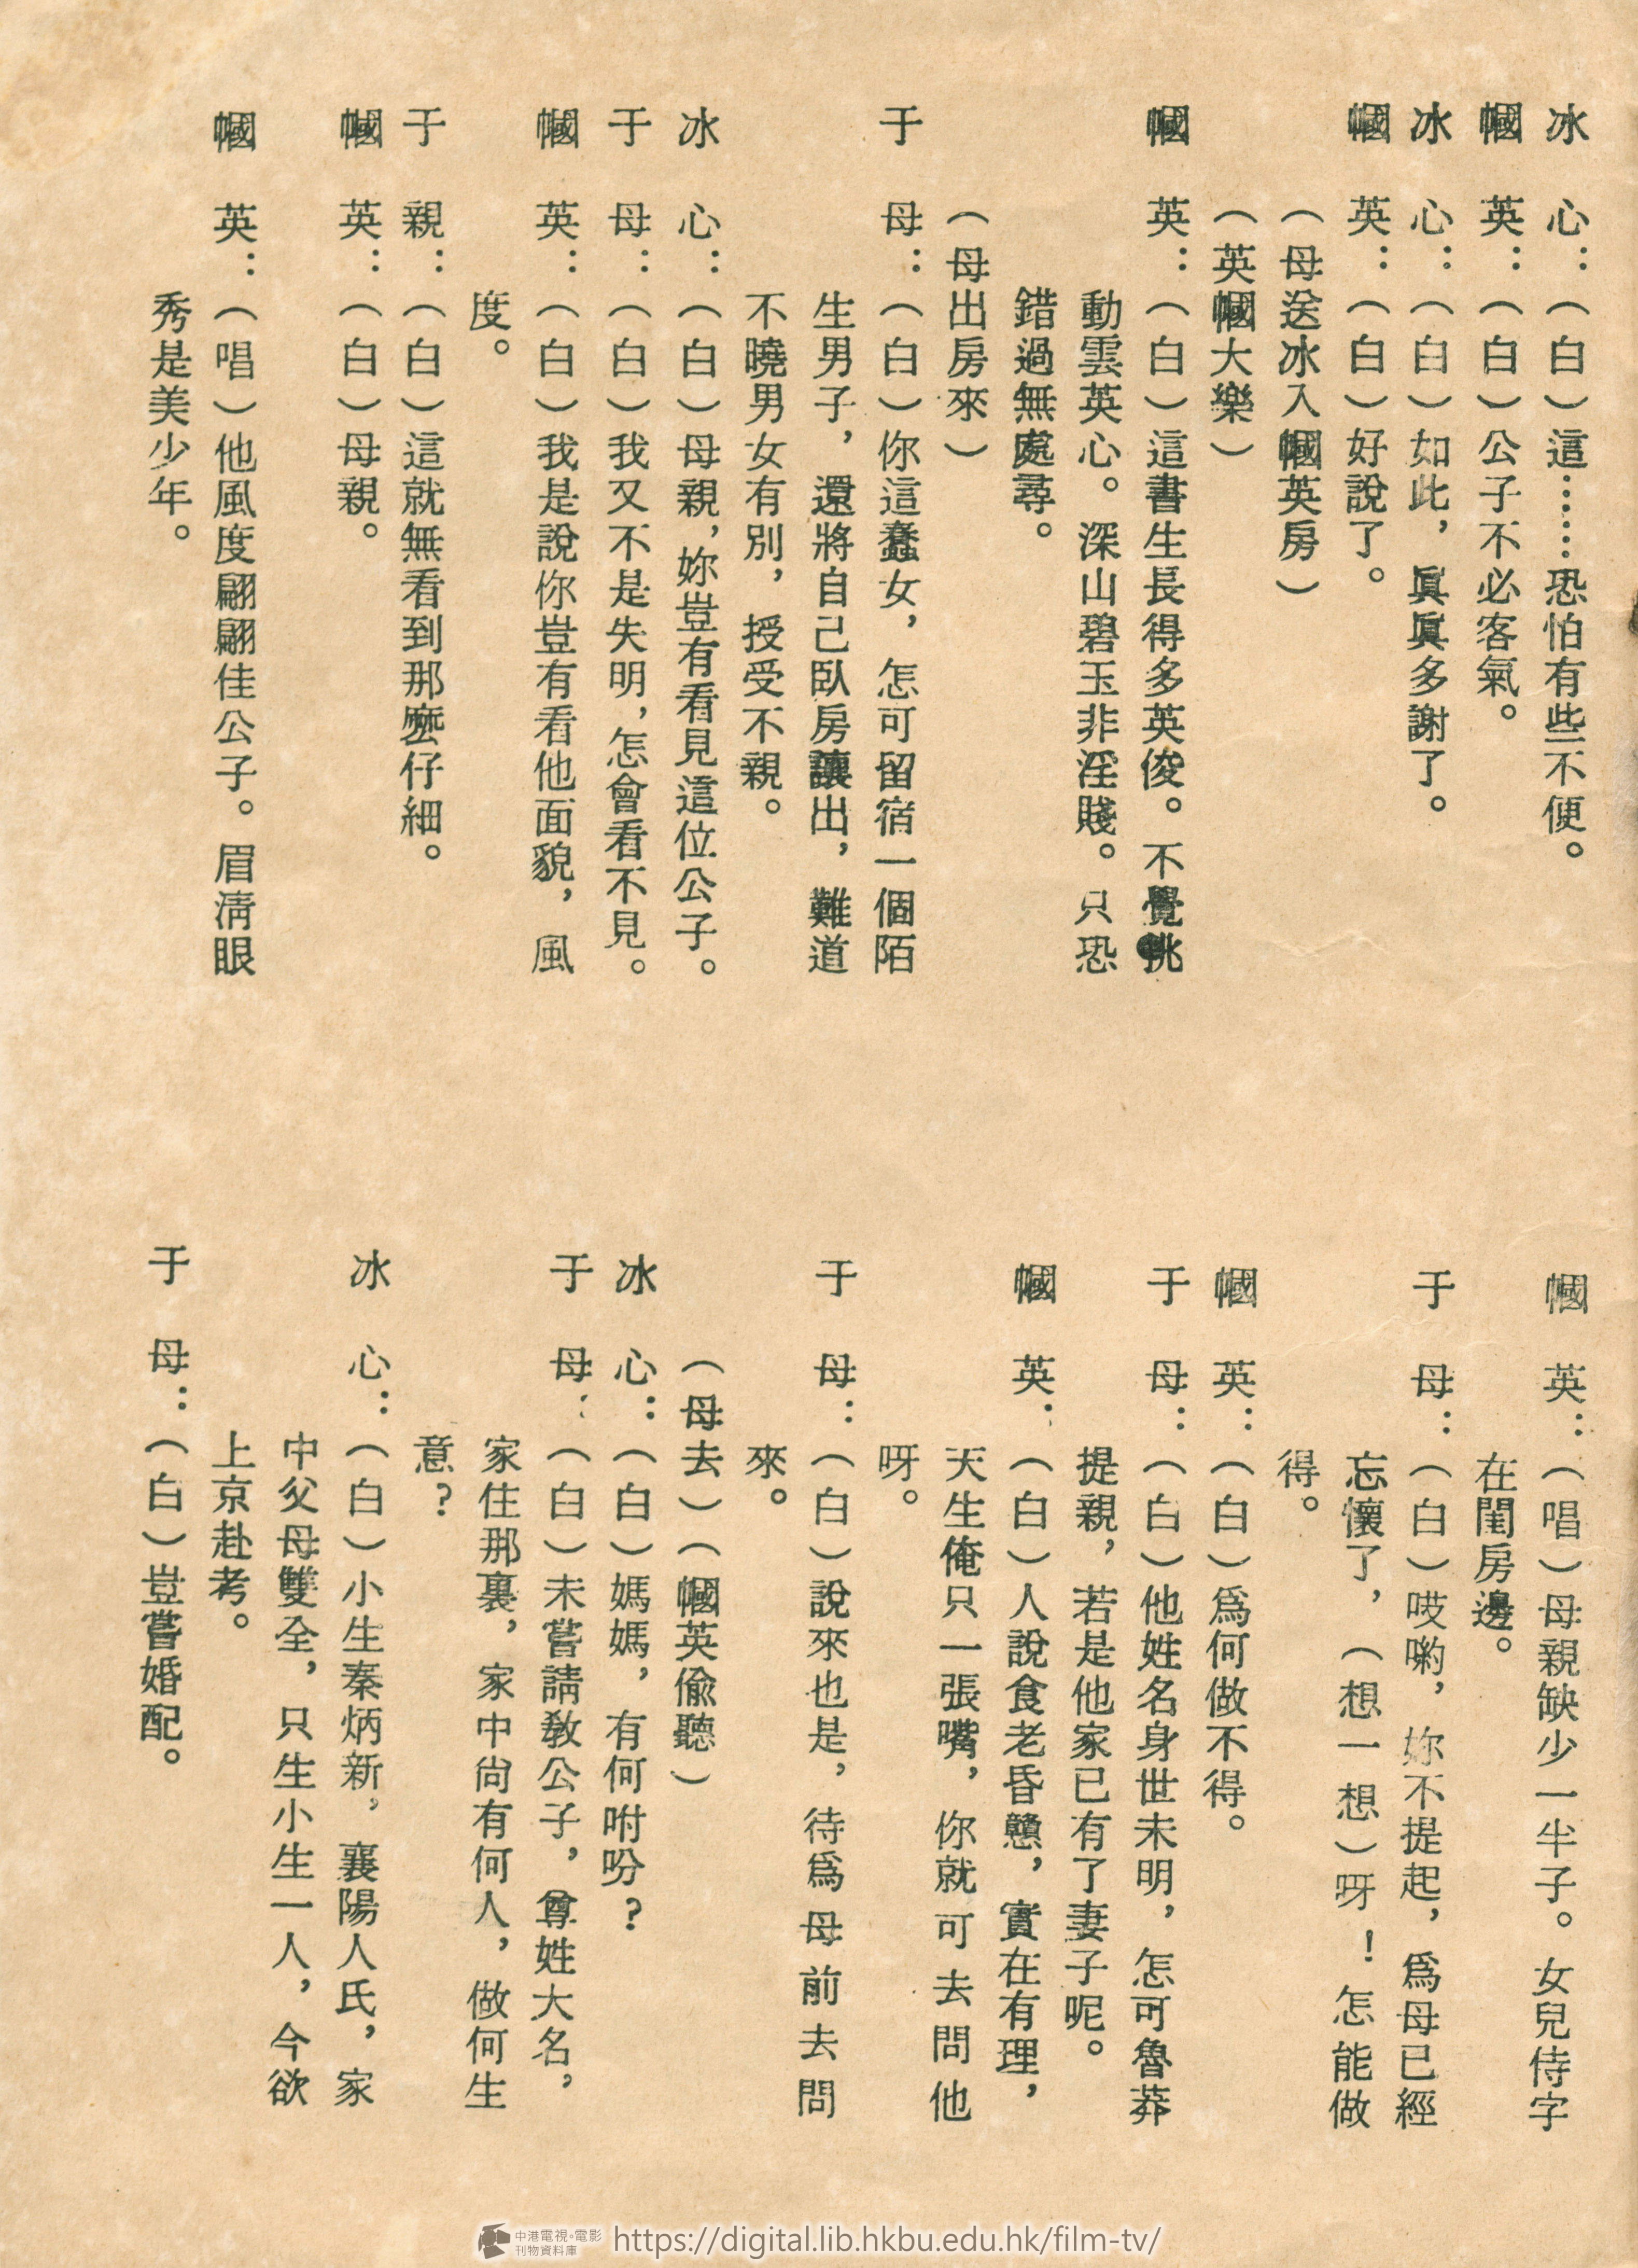 冰　心：（白）這……恐怕有些不便。
幗　英：（白）公子不必客氣。
冰　心：（白）如此，眞眞多謝了。
幗　英：（白）好說了。
（母送冰入幗英房）
（英幗大樂）
幗　英：（白）這書生長得多英俊。不覺挑
動雲英心。深山碧玉非淫賤。只恐
錯過無處尋。
（母出房來）
于　母：（白）你這蠢女，怎可留宿一個陌
生男子，還將自己臥房讓出，難道
不曉男女有別，授受不親。
冰　心：（白）母親，妳豈有看見這位公子。
于　母：（白）我又不是失明，怎會看不見。
幗　英：（白）我是說你豈有看他面貌，風
度。
于　親：（白）這就無看到那麼仔細。
幗　英：（白）母親。
幗　英：（唱）他風度翩翩佳公子。眉淸眼
秀是美少年。
幗　英：（唱）母親缺少一半子。女兒侍字
在閨房邊。
于　母：（白）哎喲，妳不提起，爲母已經
忘懷了，（想一想）呀！怎能做
得。
幗　英：（白）爲何做不得。
于　母：（白）他姓名身世未明，怎可魯莽
提親，若是他家已有了妻子呢。
幗　英：（白）人說食老昏戇，實在有理，
天生俺只一張嘴，你就可去問他
呀。
于　母：（白）說來也是，待爲母前去問
來。
（母去）（幗英偸聽）
冰　心：（白）媽媽，有何咐吩？
于　母：（白）未嘗請敎公子，尊姓大名，
家住那裏，家中尙有何人，做何生
意？
冰　心：（白）小生秦炳新，襄陽人氏，家
中父母雙全，只生小生一人，今欲
上京赴考。
于　母：（白）豈嘗婚配。
中港電視•電影
刊物資料庫
https://digital.lib.hkbu.edu.hk/film-tv/